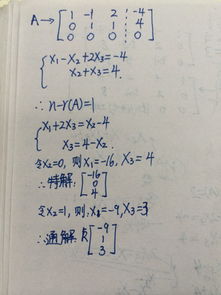 A→[1 -1 2 ┆ -4
0 1 1 ┆ 4
0 0 0 ┆ 0]
{x₁-x₂+2x₃=-4
x₂+x₃=4.
∴ n-r(A)=1
{x₁+2x₃=x₂-4
x₃=4-x₂.
令x₂=0, 则x₁=-16, x₃=4
∴特解:[-16
0
4]
令x₂=1, 则x₁=-9, x₃=3
∴通解 k[-9
1
3]